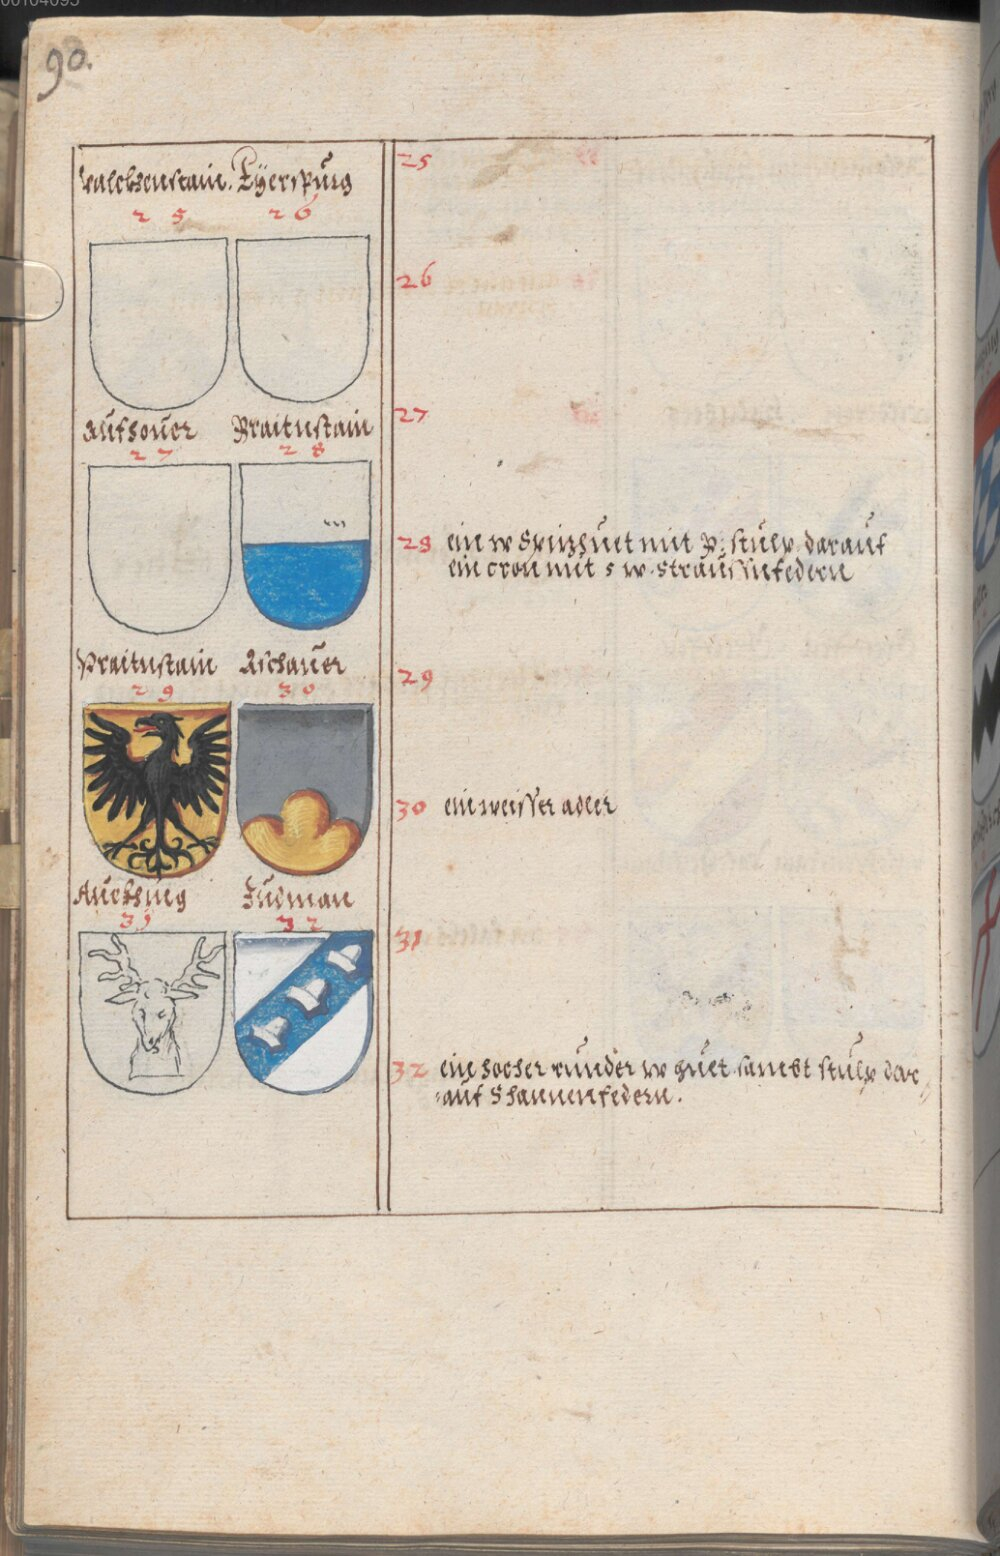 90.
Valckhenstain. Tÿerspurg
25 26
25
26
Aufhouer Praitnstain
27 28
27
28 ein w Spizhuet mit P: stulp darauf
ein cron mit 5 w. straussnfedern
Praitnstain Aschauer
29 30
29
30 ein weisser adler
Auckhing Judman
31 32
31
32 ein hocher runder w huet sambt stulp dar
auf Phannenfedern.